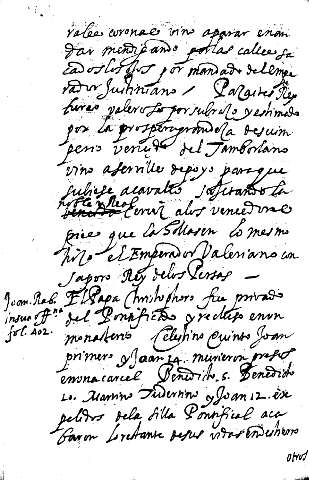 ralea coronae vino aparar en an
dar mendigando por las calles sa
cados los ojos por mandado del Empe
rador Justiniano / Pazaites Rey
turco valeroso por su braço y estimado
por la prospera grandeza de su im
perio vencido del Tamborlano
vino a serville de poyo para que
subiese a cavallo sojetando la
noble y Real
cerviz a los vencedores
pies que la hollasen lo mesmo
hizo el Emperador Valeriano con
Sapor Rey de los Persas —
Juan. Rab. El Papa Christophoro fue privado
in suo off.
fol. 402.
del Pontificado y recluso en un
monasterio Celestino quinto Juan
primero y Juan 14. murieron presos
en una carcel Benedicto 5. Benedicto
10. Martino Tudertino y Juan 12. ex
pelidos de la silla Pontifical aca
baron lo restante de sus vidas en destierro
otros